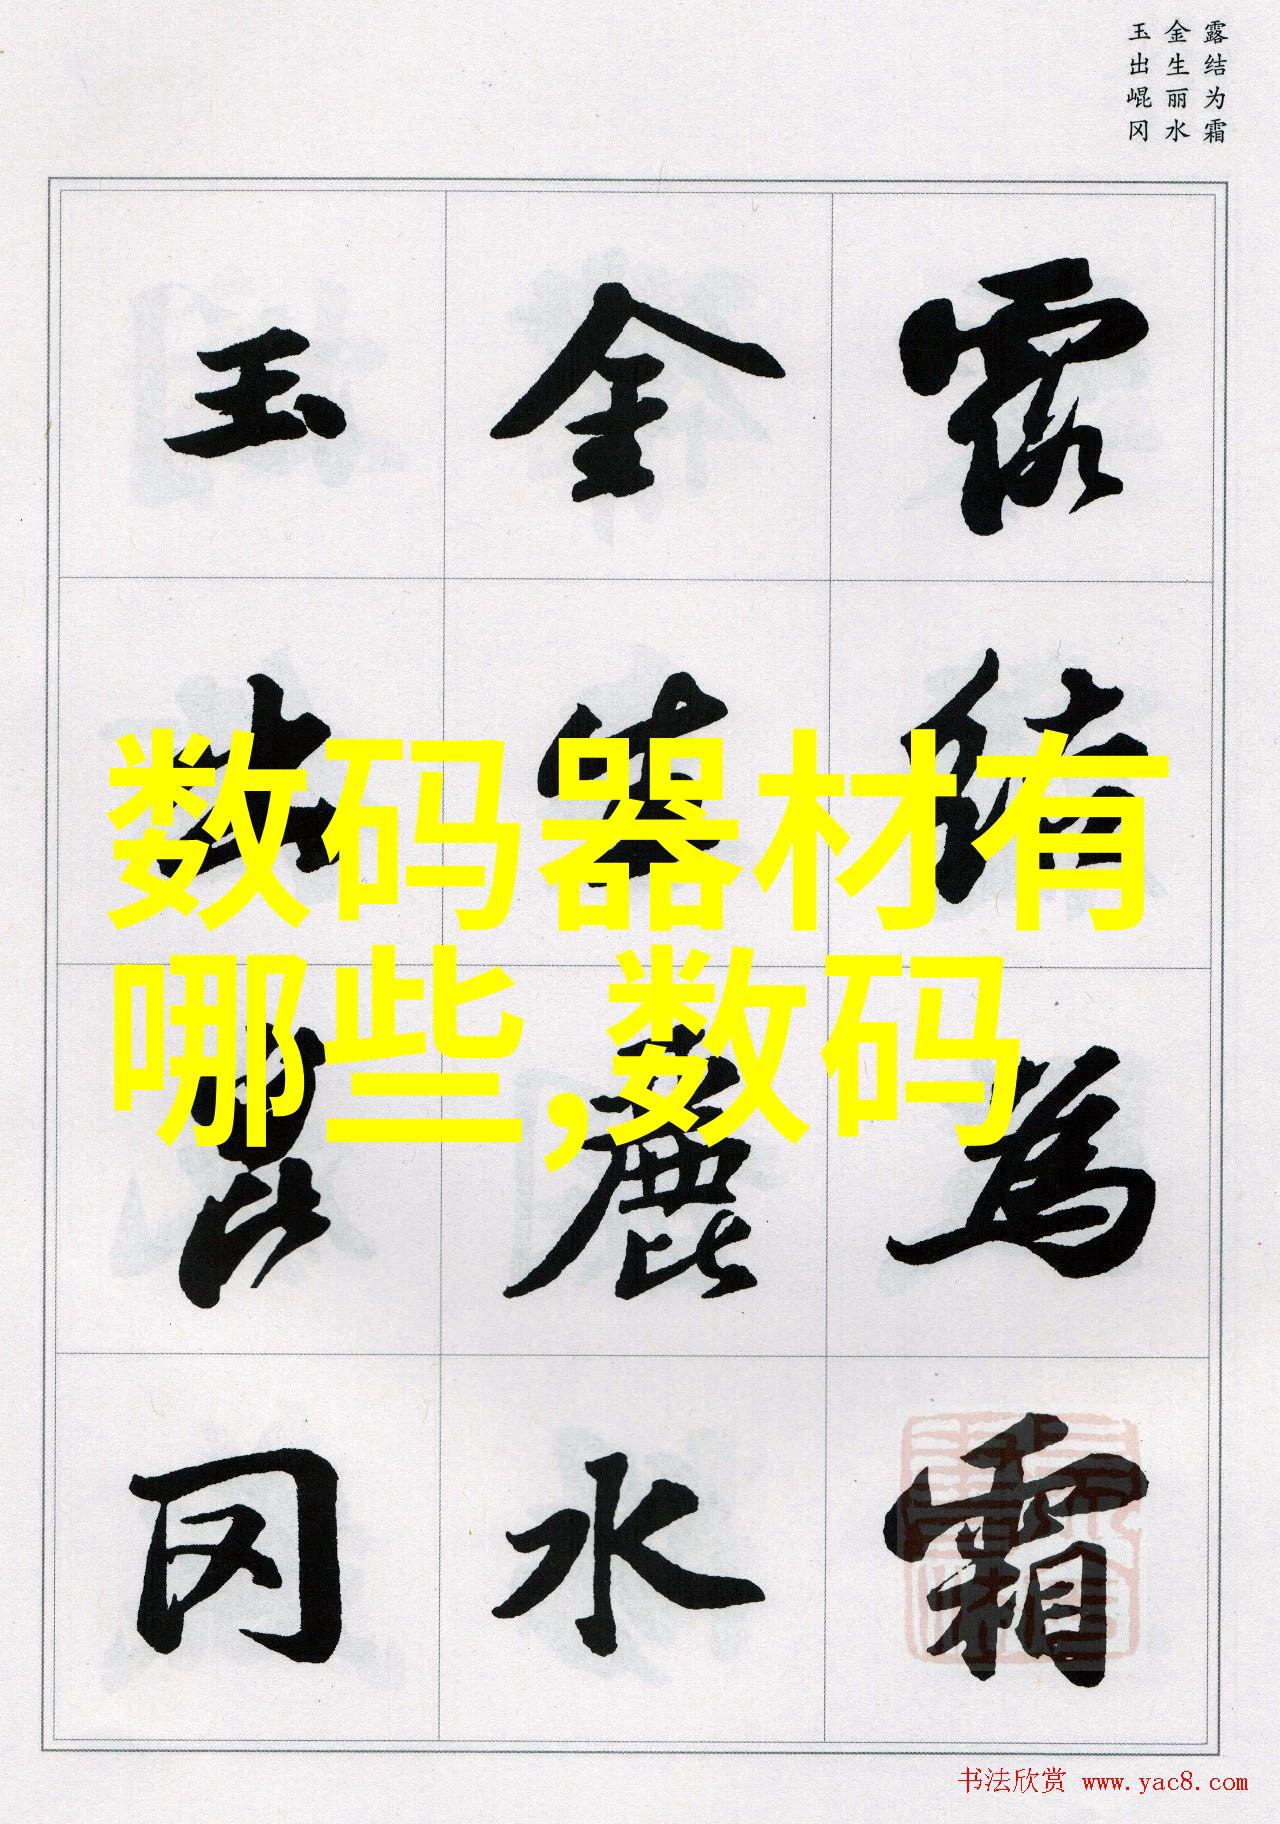 露结为霜
金生丽水
玉出崐冈
露結為霜
金生麗水
玉出昆冈
数码器材有
哪些,数码
书法欣赏 www.yac8.com